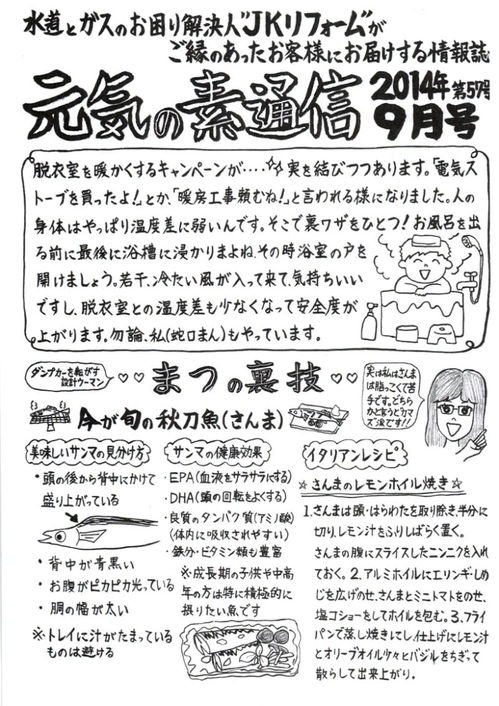 水道とガスのお困り解決人"JKリフォーム"が
ご縁のあったお客様にお届けする情報誌
元気の素通信
2014年 第57号
9月号
脱衣室を暖かくするキャンペーンが‥‥☆☆実を結びつつあります。「電気ス
トーブを買ったよ!」とか、「暖房工事頼むね!」と言われる様になりました。人の
身体はやっぱり温度差に弱いんです。そこで裏ワザをひとつ!お風呂を出
る前に最後に浴槽に浸かりまよね、その時浴室の戸を
開けましょう。若干、冷たい風が入って来て、気持ちいい
ですし、脱衣室との温度差も少なくなって安全度が
上がります。勿論、私(蛇口まん)もやっています。
ダンプカーを転がす
設計ウーマン
♡♡まつの裏技♡♡
今が旬の秋刀魚(さんま)
実は私はさんま
は脂っこくて苦
手です。どちら
かと言うとカマ
ス派です!!
美味しいサンマの見分け方
・頭の後から背中にかけて
盛り上がっている
・背中が青黒い
・お腹がピカピカ光っている
・胴の幅が太い
※トレイに汁がたまっている
ものは避ける
サンマの健康効果
・EPA(血液をサラサラにする)
・DHA(頭の回転をよくする)
・良質のタンパク質(アミノ酸)
(体内に吸収されやすい)
・鉄分・ビタミン類も豊富
※成長期の子供や中高
年の方は特に積極的に
摂りたい魚です
イタリアンレシピ
☆さんまのレモンホイル焼き☆
1.さんまは頭・はらわたを取り除き、半分に
切り、レモン汁をふりしばらく置く。
さんまの腹にスライスしたニンニクを入れ
ておく。2.アルミホイルにエリンギ・しめ
じを広げのせ、さんまとミニトマトをのせ、
塩コショーをしてホイルを包む。3.フライ
パンで蒸し焼きにし、仕上げにレモン汁
とオリーブオイル少々とバジルをちぎって
散らして出来上がり。